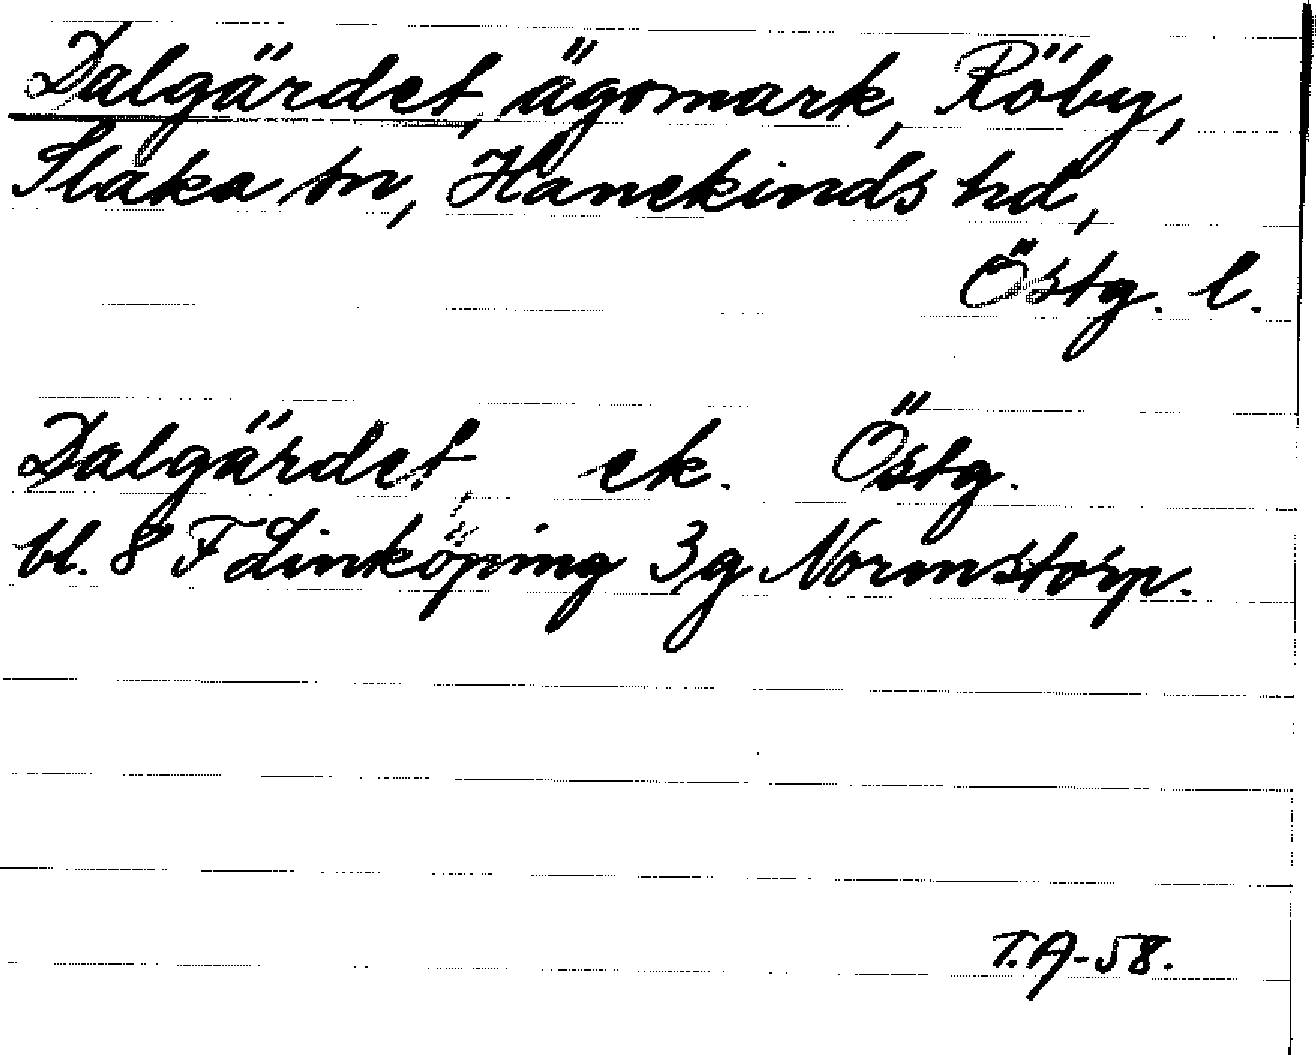 Dalgärdet, ägomark, Röby,
Slaka sn, Hanekinds hd,
Östg. l.
Dalgärdet, ek. Östg.
bl. 8 F Linköping 3g Normstorp.
T.A-58.